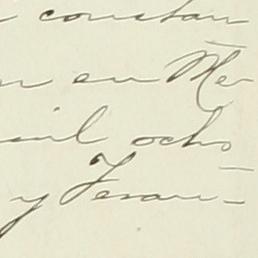 constan
en Me-
mil ocho
y Teran-